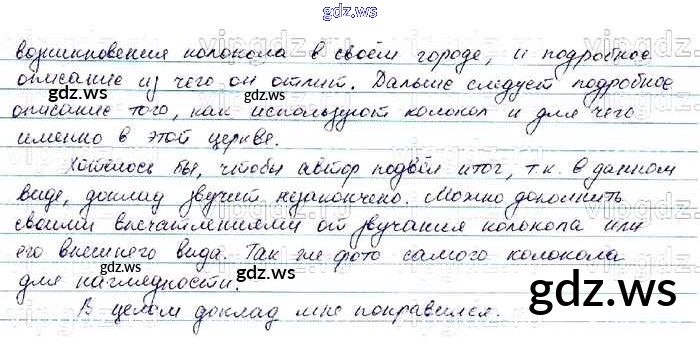 gdz.ws
возникновения колокола в своём городе, и подробное
описание из чего он отлит. Дальше следует подробное
описание того, как используют колокол и для чего
именно в этой церкве.
Хотелось бы, чтобы автор подвёл итог, т.к. в данном
виде, доклад звучит незакончено. Можно дополнить
своими впечатлениями от звучания колокола или
его внешнего вида. Так же фото самого колокола
для наглядности.
В целом доклад мне понравился.
gdz.ws